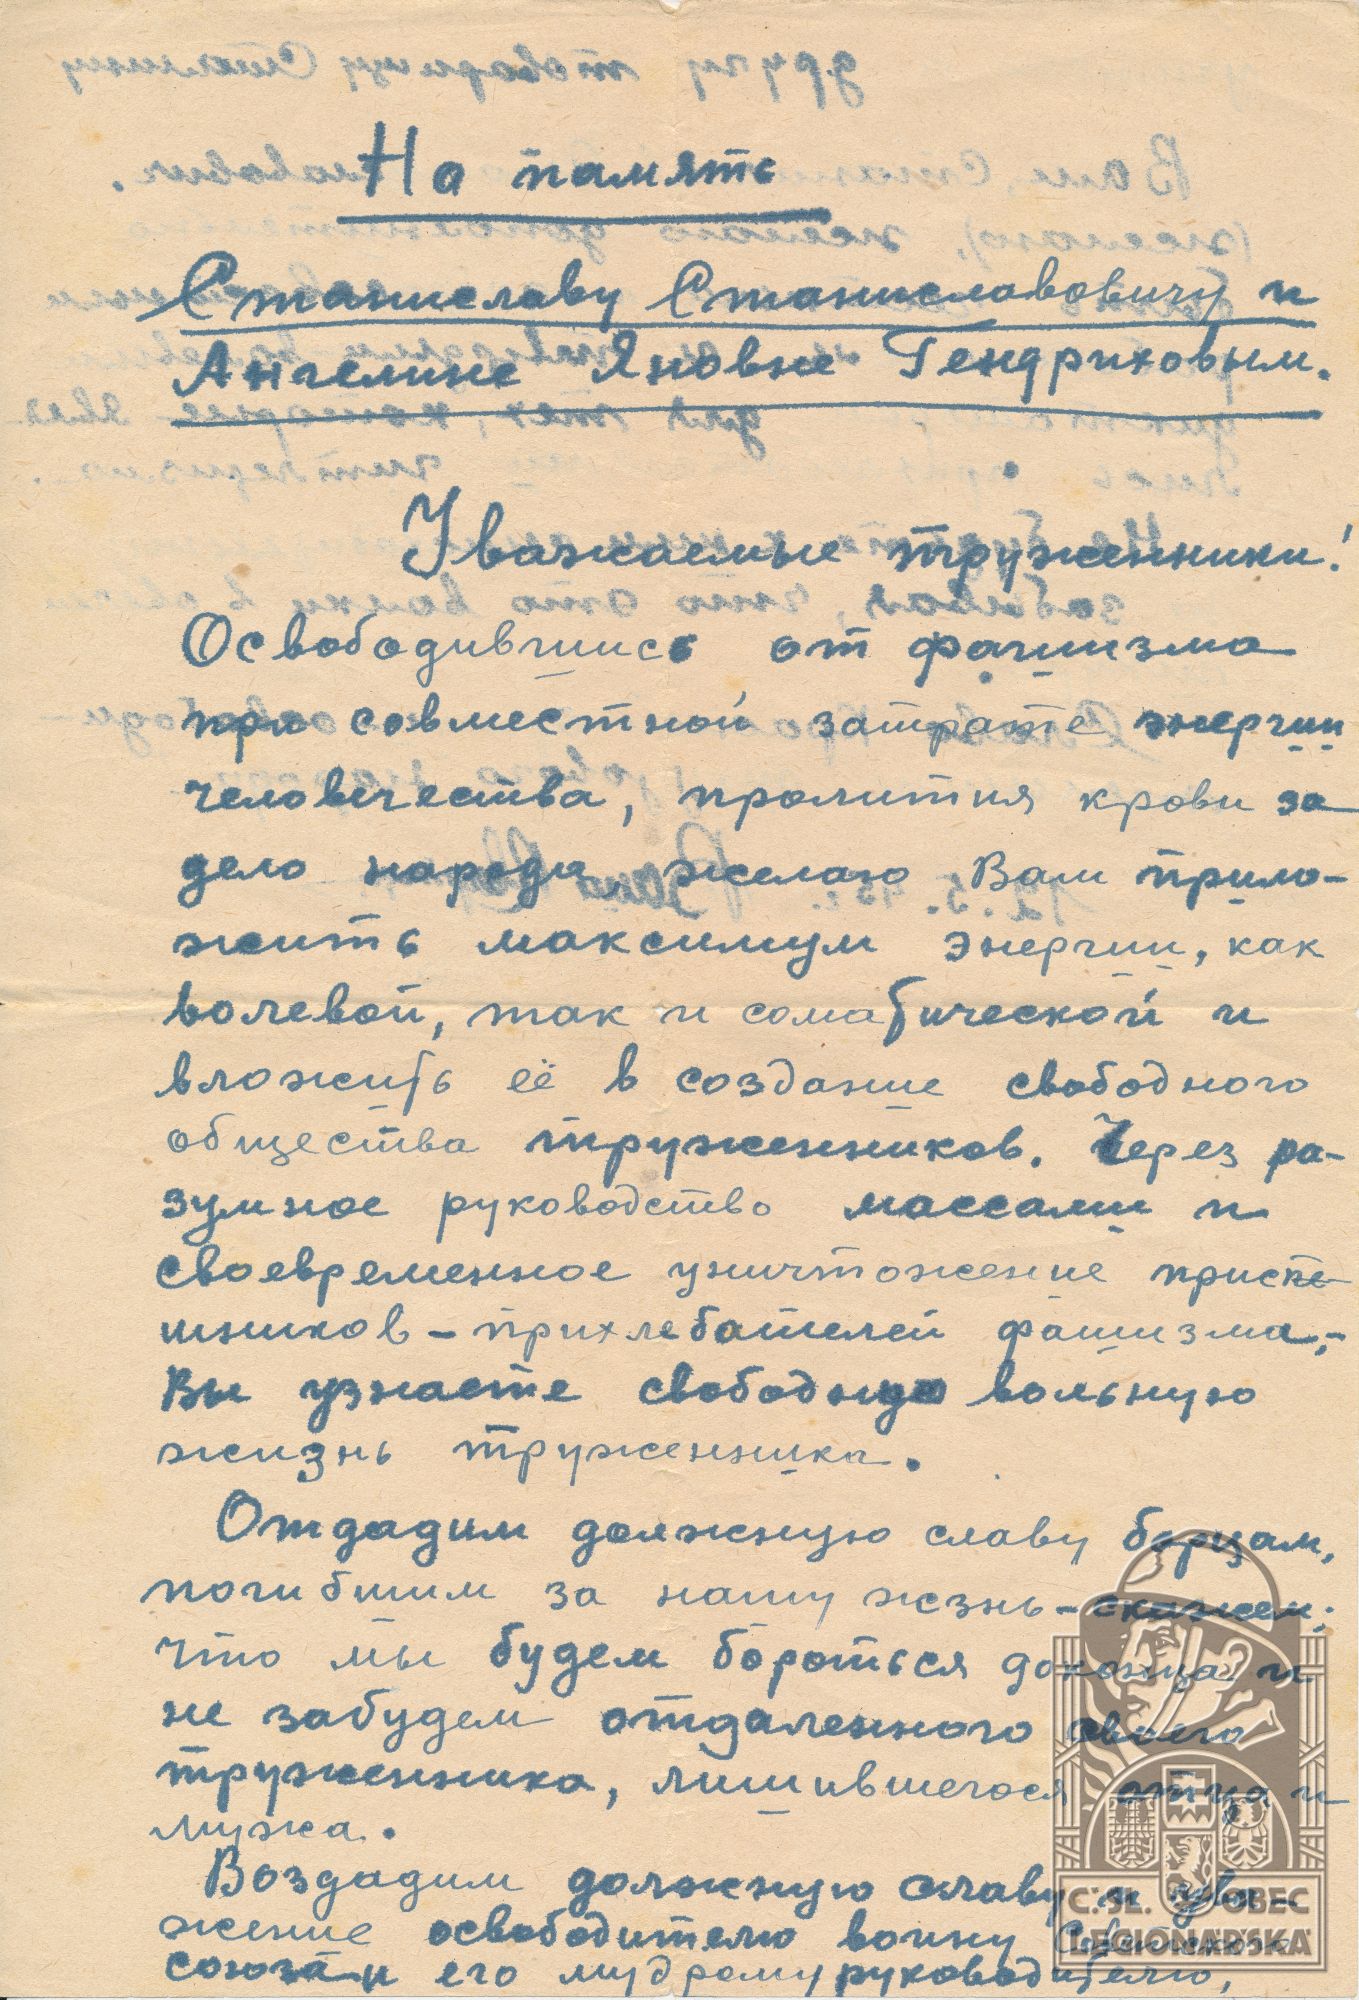 На память
Станиславу Станиславовичу и
Ангелине Яновне Гендриховым.
Уважаемые труженники!
Освободившись от фашизма
при совместной затрате энергии
человечества, пролития крови за
дело народа, желаю Вам прило-
жить максимум энергии, как
волевой, так и соматической и
вложить её в создание свободного
общества труженников. Через ра-
зумное руководство массами и
своевременное уничтожение приспе-
шников-прихлебателей фашизма,-
Вы узнаете свободную вольную
жизнь труженника.
Отдадим должную славу борцам,
погибшим за нашу жзнь-скажем;
что мы будем бороться доконца и
не забудем отдаленного своего
труженника, лишившегося отца и
мужа.
Воздадим должную славу и ува-
жение освободителю воину Советского
союза и его мудрому руководителю,
Č: SL. OBEC
LEGIONÁŘSKÁ
другу товарищу Сталину
12. 5. 45 г.